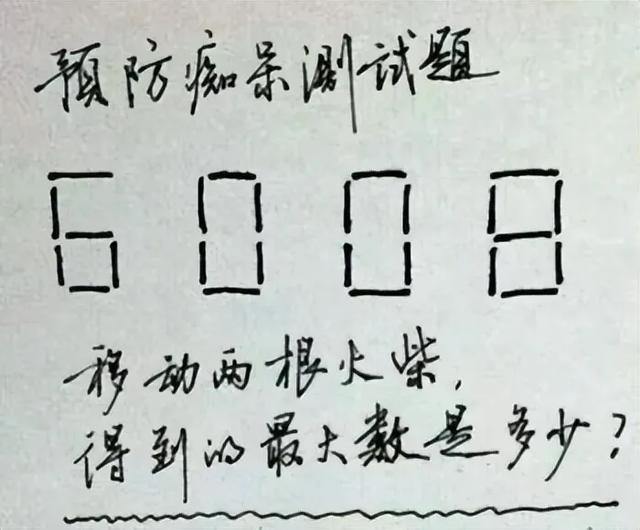 预防痴呆测试题
6008
移动两根火柴，
得到的最大数是多少？